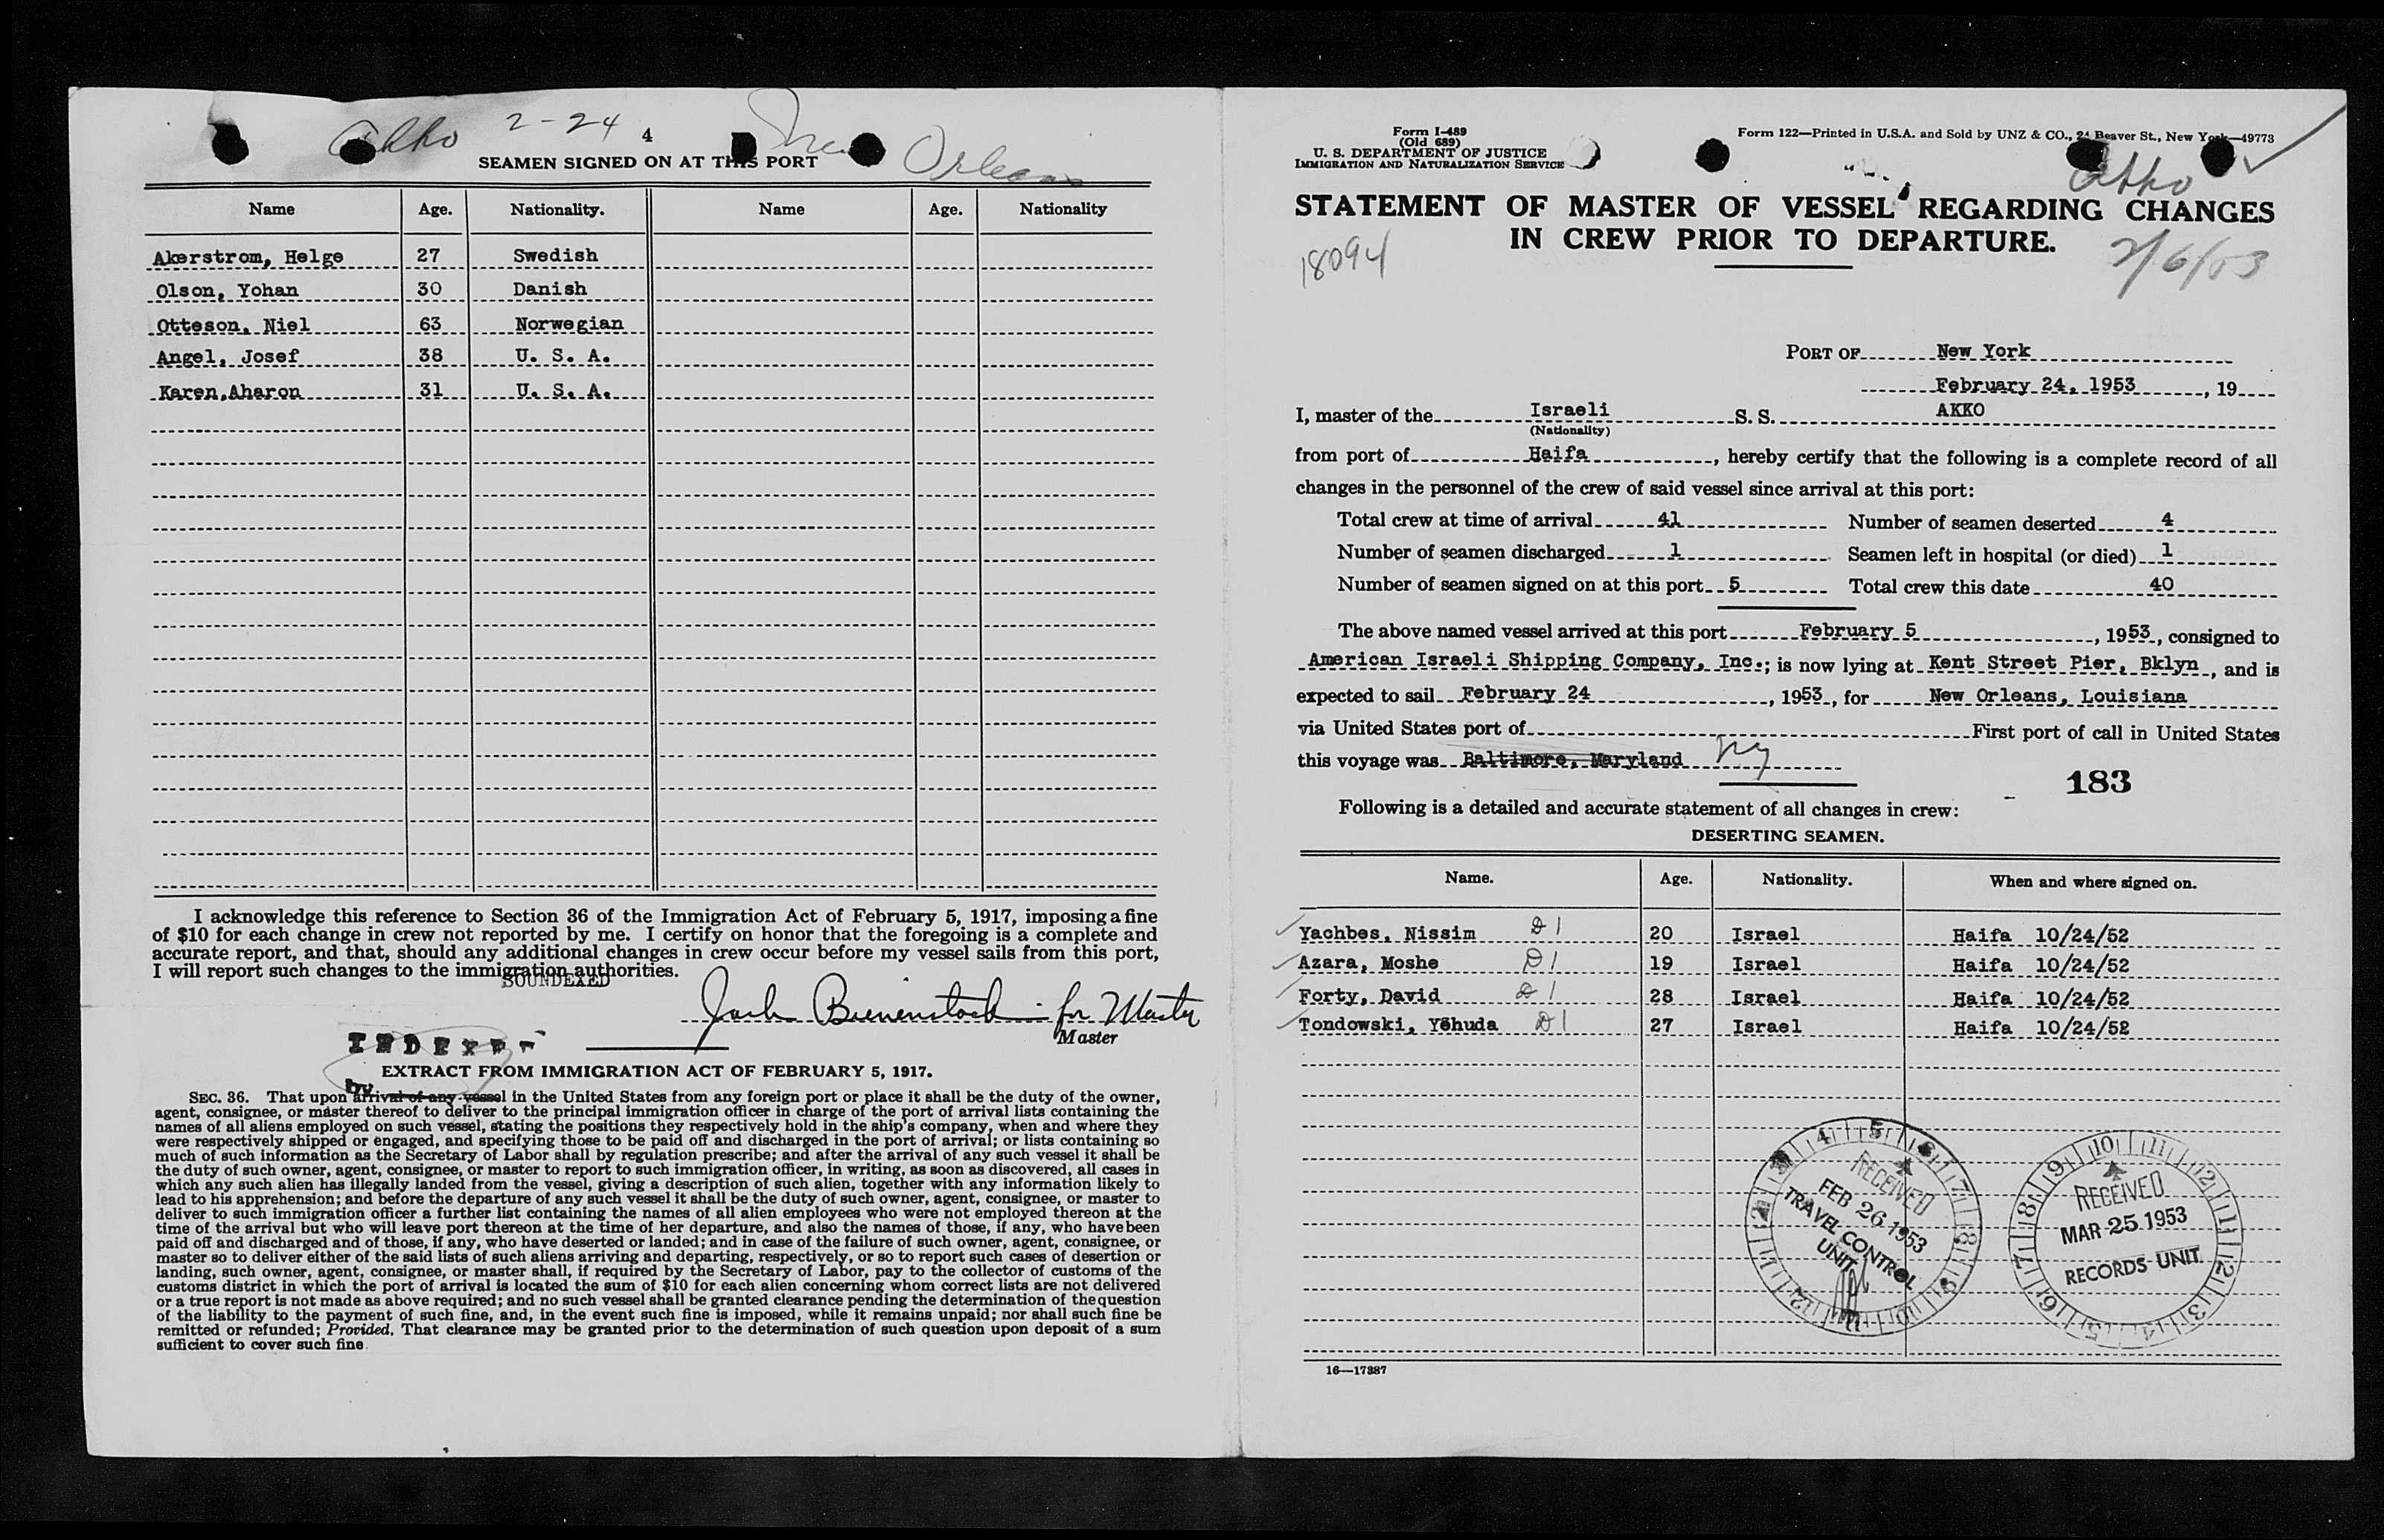 Akko 2-24 4 New Orleans
SEAMEN SIGNED ON AT THIS PORT
Name Age. Nationality. Name Age. Nationality
Akerstrom, Helge 27 Swedish
Olson, Yohan 30 Danish
Otteson, Niel 63 Norwegian
Angel, Josef 38 U. S. A.
Karen,Aharon 31 U. S. A.
I acknowledge this reference to Section 36 of the Immigration Act of February 5, 1917, imposing a fine
of $10 for each change in crew not reported by me. I certify on honor that the foregoing is a complete and
accurate report, and that, should any additional changes in crew occur before my vessel sails from this port,
I will report such changes to the immigration authorities.
SOUNDEXED
Jack Bienenstock for Master
Master
INDEXED
EXTRACT FROM IMMIGRATION ACT OF FEBRUARY 5, 1917.
by
SEC. 36. That upon arrival of any vessel in the United States from any foreign port or place it shall be the duty of the owner,
agent, consignee, or master thereof to deliver to the principal immigration officer in charge of the port of arrival lists containing the
names of all aliens employed on such vessel, stating the positions they respectively hold in the ship's company, when and where they
were respectively shipped or engaged, and specifying those to be paid off and discharged in the port of arrival; or lists containing so
much of such information as the Secretary of Labor shall by regulation prescribe; and after the arrival of any such vessel it shall be
the duty of such owner, agent, consignee, or master to report to such immigration officer, in writing, as soon as discovered, all cases in
which any such alien has illegally landed from the vessel, giving a description of such alien, together with any information likely to
lead to his apprehension; and before the departure of any such vessel it shall be the duty of such owner, agent, consignee, or master to
deliver to such immigration officer a further list containing the names of all alien employees who were not employed thereon at the
time of the arrival but who will leave port thereon at the time of her departure, and also the names of those, if any, who have been
paid off and discharged and of those, if any, who have deserted or landed; and in case of the failure of such owner, agent, consignee, or
master so to deliver either of the said lists of such aliens arriving and departing, respectively, or so to report such cases of desertion or
landing, such owner, agent, consignee, or master shall, if required by the Secretary of Labor, pay to the collector of customs of the
customs district in which the port of arrival is located the sum of $10 for each alien concerning whom correct lists are not delivered
or a true report is not made as above required; and no such vessel shall be granted clearance pending the determination of the question
of the liability to the payment of such fine, and, in the event such fine is imposed, while it remains unpaid; nor shall such fine be
remitted or refunded; Provided, That clearance may be granted prior to the determination of such question upon deposit of a sum
sufficient to cover such fine
Form I-489
(Old 689)
U. S. DEPARTMENT OF JUSTICE
IMMIGRATION AND NATURALIZATION SERVICE
Form 122—Printed in U.S.A. and Sold by UNZ & CO., 24 Beaver St., New York—49773
Akko
STATEMENT OF MASTER OF VESSEL REGARDING CHANGES
IN CREW PRIOR TO DEPARTURE.
18094
2/6/53
PORT OF New York
February 24, 1953, 19
I, master of the Israeli S. S. AKKO
(Nationality)
from port of Haifa, hereby certify that the following is a complete record of all
changes in the personnel of the crew of said vessel since arrival at this port:
Total crew at time of arrival 41 Number of seamen deserted 4
Number of seamen discharged 1 Seamen left in hospital (or died) 1
Number of seamen signed on at this port 5 Total crew this date 40
The above named vessel arrived at this port February 5, 1953, consigned to
American Israeli Shipping Company, Inc.; is now lying at Kent Street Pier, Bklyn, and is
expected to sail February 24, 1953, for New Orleans, Louisiana
via United States port of First port of call in United States
this voyage was Baltimore, Maryland NY
183
Following is a detailed and accurate statement of all changes in crew:
DESERTING SEAMEN.
Name. Age. Nationality. When and where signed on.
Yachbes, Nissim D1 20 Israel Haifa 10/24/52
Azara, Moshe D1 19 Israel Haifa 10/24/52
Forty, David D1 28 Israel Haifa 10/24/52
Tondowski, Yehuda D1 27 Israel Haifa 10/24/52
RECEIVED
FEB 26 1953
TRAVEL CONTROL
UNIT
RECEIVED
MAR 25 1953
RECORDS UNIT
16—17387